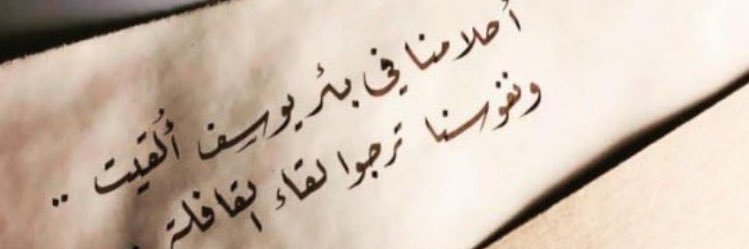 أحلامنا في بئر يوسف أُلقيت ..
ونفوسنا ترجوا لقاء القافلة